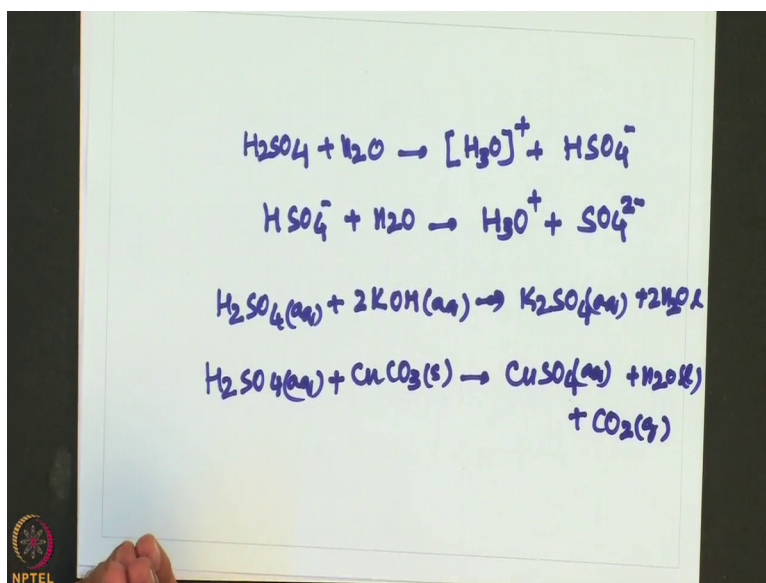 H2SO4 + H2O → [H3O]⁺ + HSO4⁻
HSO4⁻ + H2O → H3O⁺ + SO4²⁻
H2SO4(aq) + 2KOH(aq) → K2SO4(aq) + 2H2O l
H2SO4(aq) + CuCO3(s) → CuSO4(aq) + H2O(l)
+ CO2(g)
NPTEL